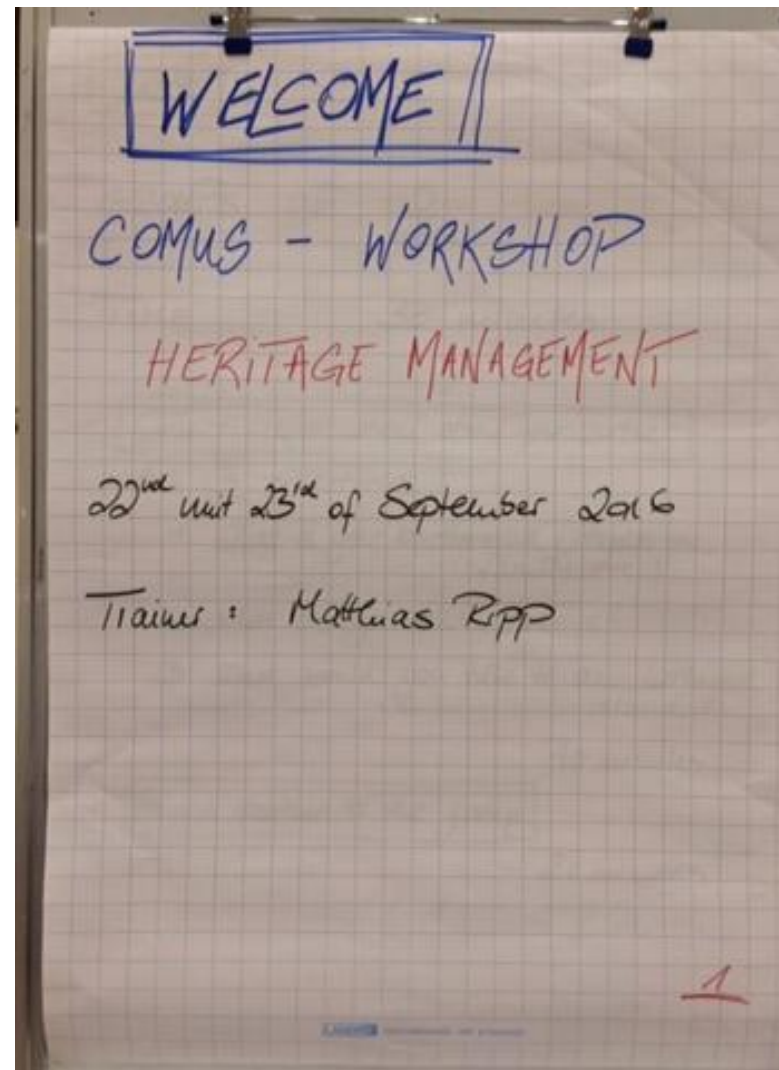 WELCOME
COMUS - WORKSHOP
HERITAGE MANAGEMENT
22nd unit 23rd of September 2016
Trainer : Matthias Ripp
1